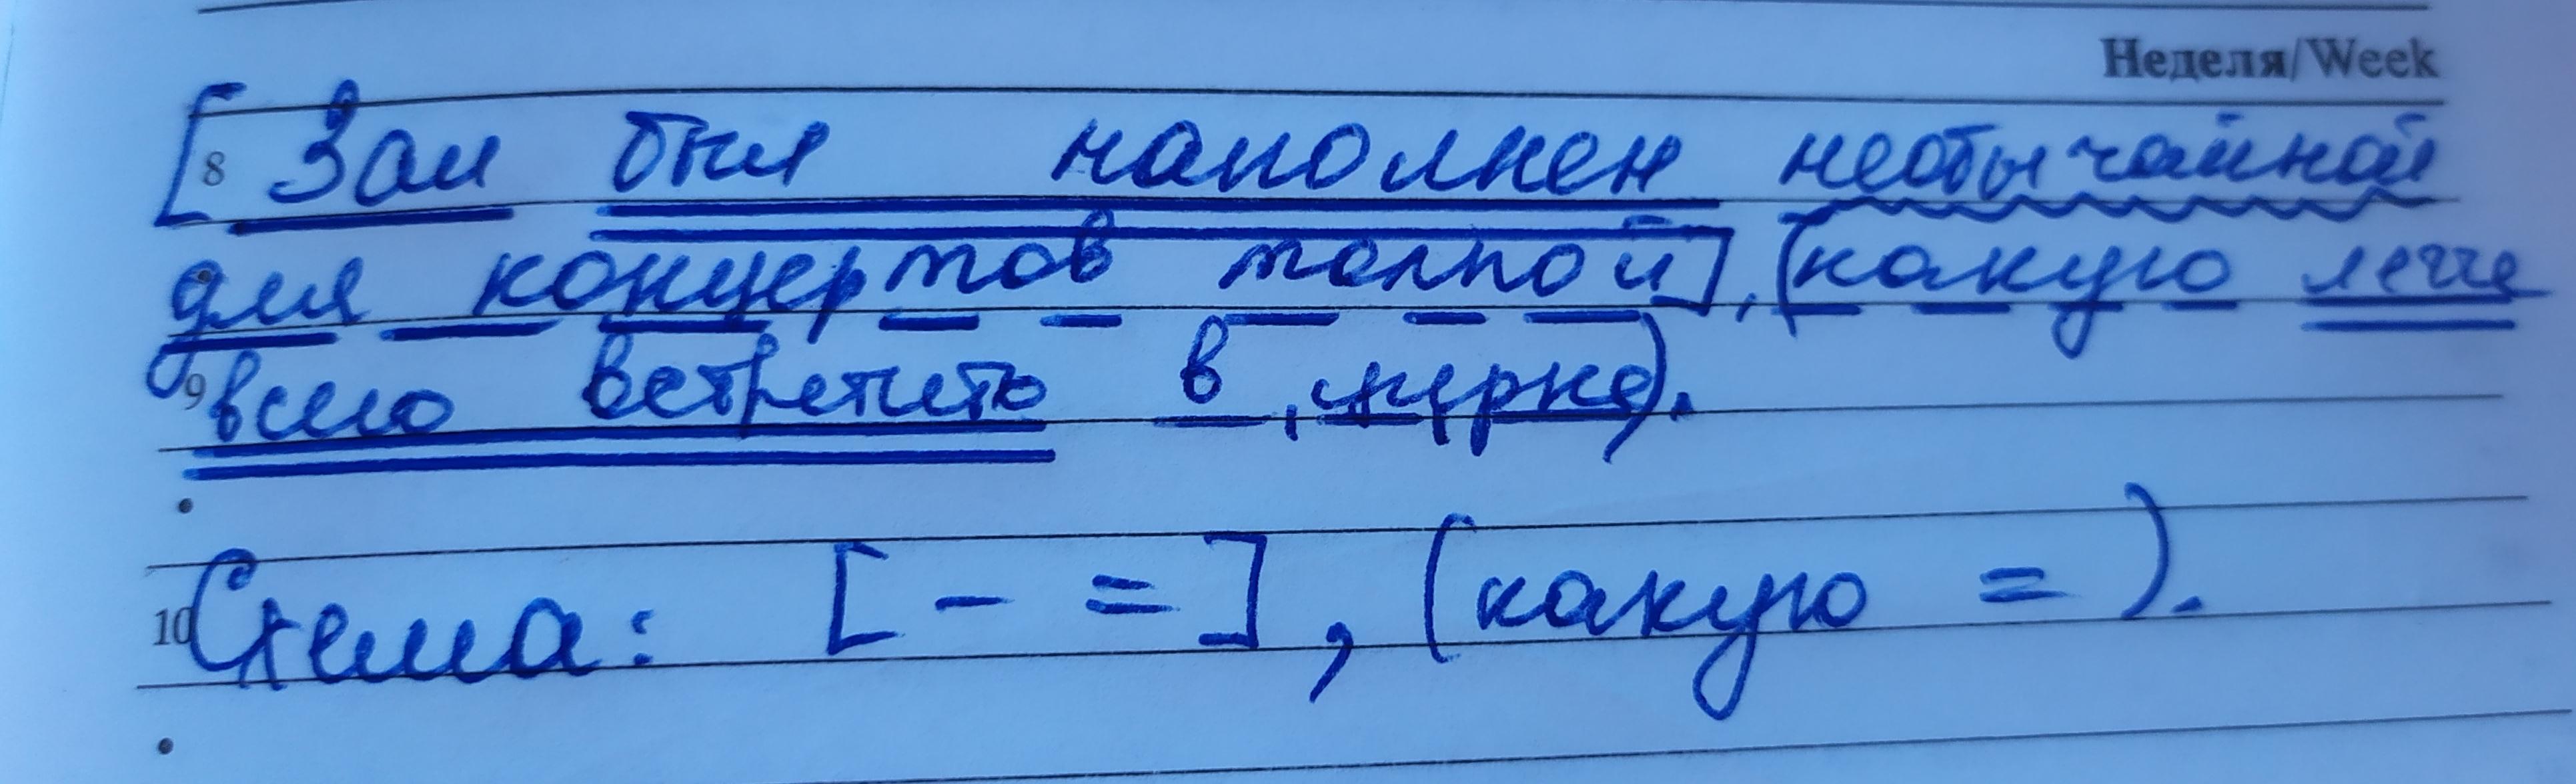 Неделя/Week
[ 8 Зал был наполнен необычайной
для концертов толпой], (какую легче
9 всего встретить в цирке).
10 Схема: [ - = ], (какую = ).